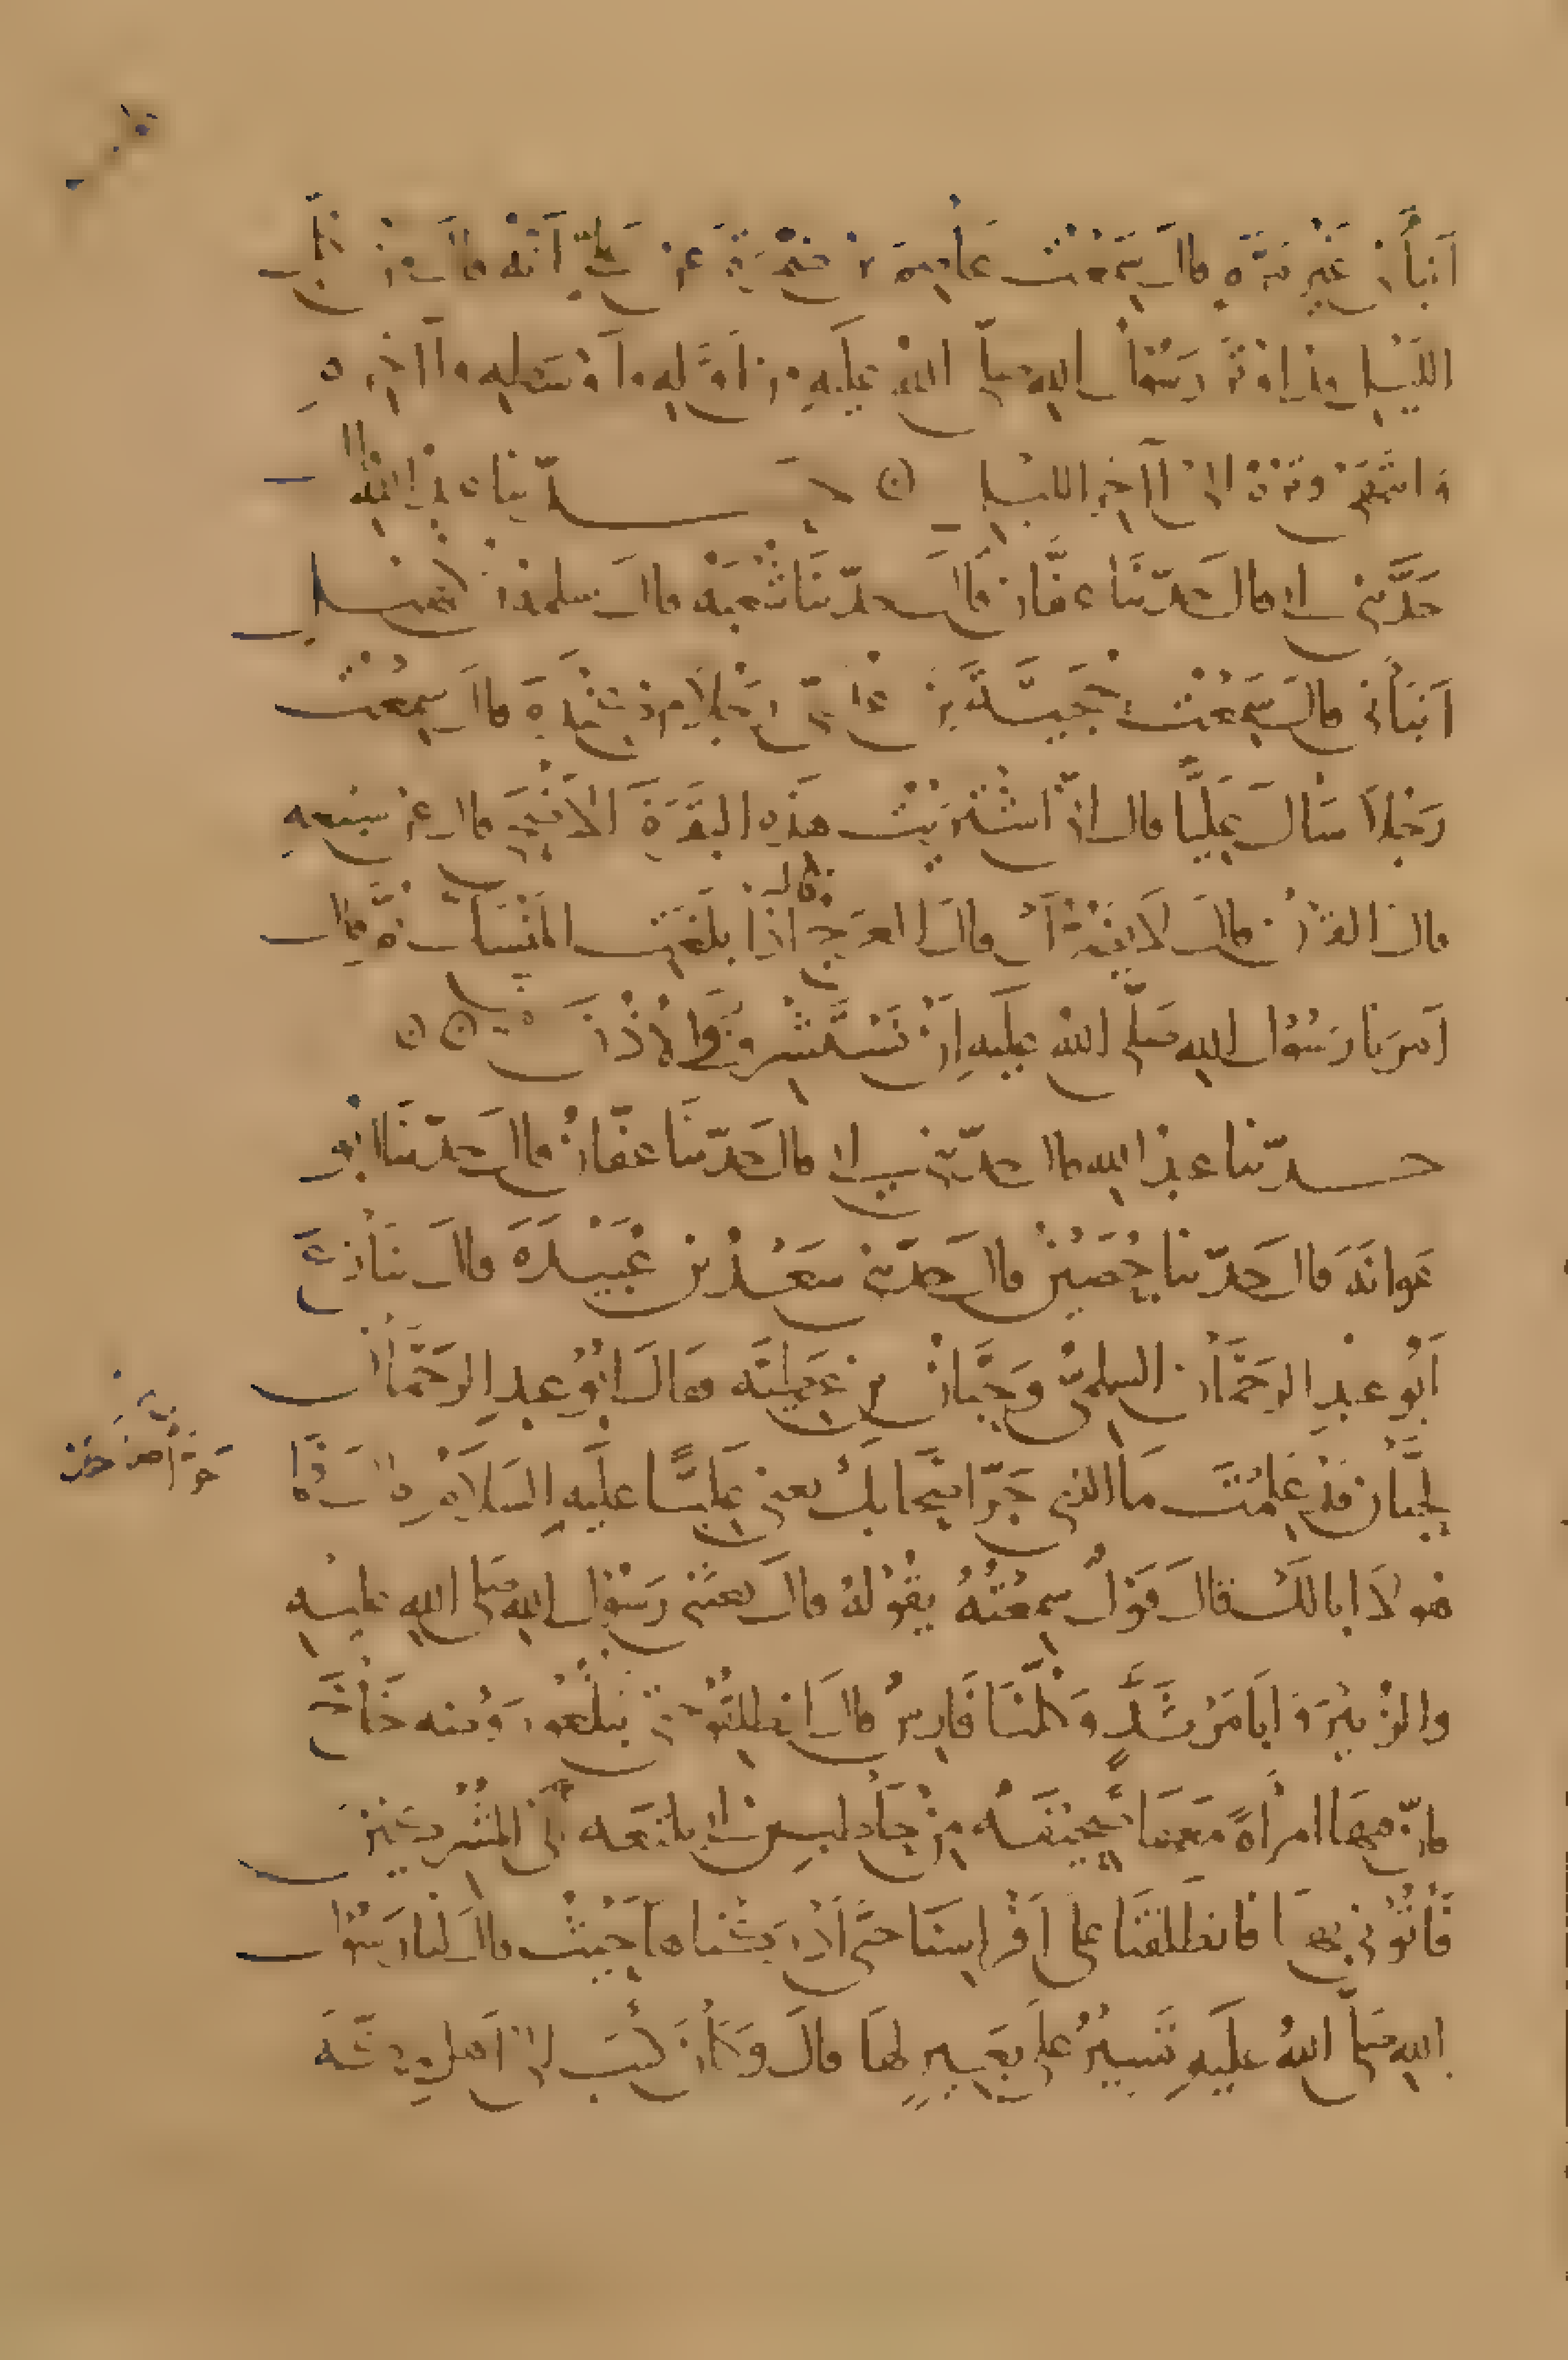 أنبأني غير مرة قال سمعت عاصم بن ضمرة عن علي أنه قال من كل
الليل قد أوتر رسول الله صلى الله عليه من أوله وأوسطه وآخره
وانتهى وتره إلى آخر الليل حدثنا عبد الله
حدثني أبي قال حدثنا عفان قال حدثنا شعبة قال سلمة بن كهيل
أنبأني قال سمعت حجية بن عدي رجلا من كندة قال سمعت
رجلا سأل عليا قال إني اشتريت هذه البقرة للأضحى قال عن سبعة
قال القرن قال لا يضرك قال العرج قال إذا بلغت المنسك ثم قال
أمرنا رسول الله صلى الله عليه أن نستشرف العين والأذن
حدثنا عبد الله قال حدثني أبي قال حدثنا عفان قال حدثنا أبو
عوانة قال حدثنا حصين قال حدثني سعد بن عبيدة قال تنازع
أبو عبد الرحمان السلمي وحبان بن عطية فقال أبو عبد الرحمان
لحبان قد علمت ما الذي جرأ صاحبك يعني عليا عليه السلام قال فما
هو لا أبا لك قال قول سمعته يقوله قال بعثني رسول الله صلى الله عليه
والزبير وأبا مرثد وكلنا فارس قال انطلقوا حتى تبلغوا روضة خاخ
فإن فيها امرأة معها صحيفة من حاطب بن أبي بلتعة إلى المشركين
فأتوني بها فانطلقنا على أفراسنا حتى أدركناها حيث قال لنا رسول
الله صلى الله عليه تسير على بعير لها قال وكان كتب إلى أهل مكة